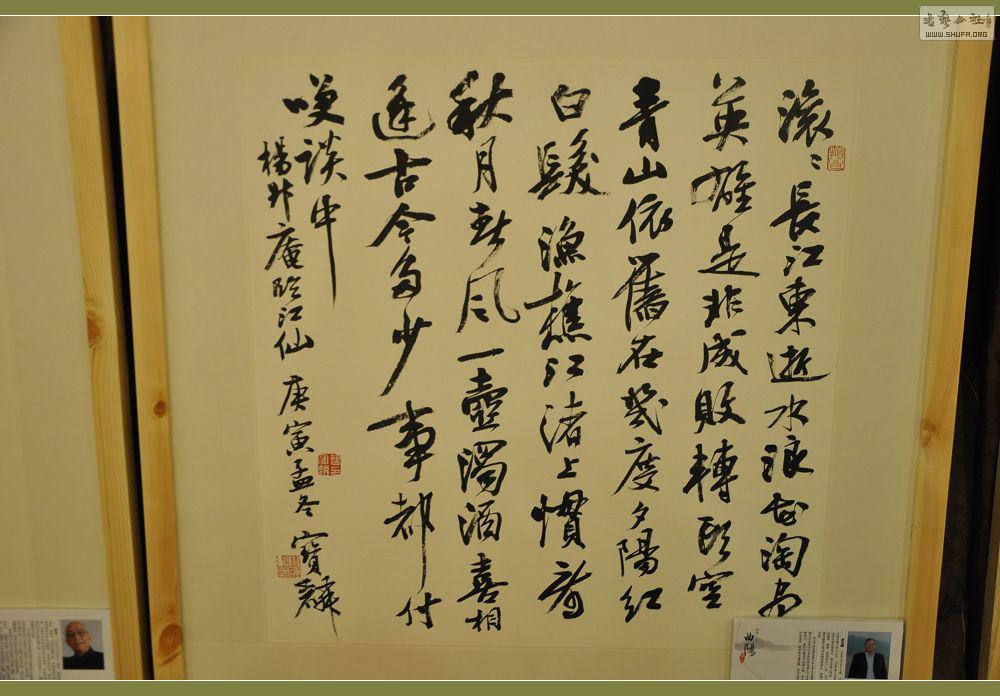 滚〻長江東逝水浪花淘尽
英雄是非成敗轉頭空
青山依舊在幾度夕陽紅
白髮漁樵江渚上慣看
秋月春风一壺濁酒喜相
逢古今多少事都付
笑談中
楊升庵臨江仙 庚寅孟冬 寶麟
书艺公社
WWW.SHUFA.ORG